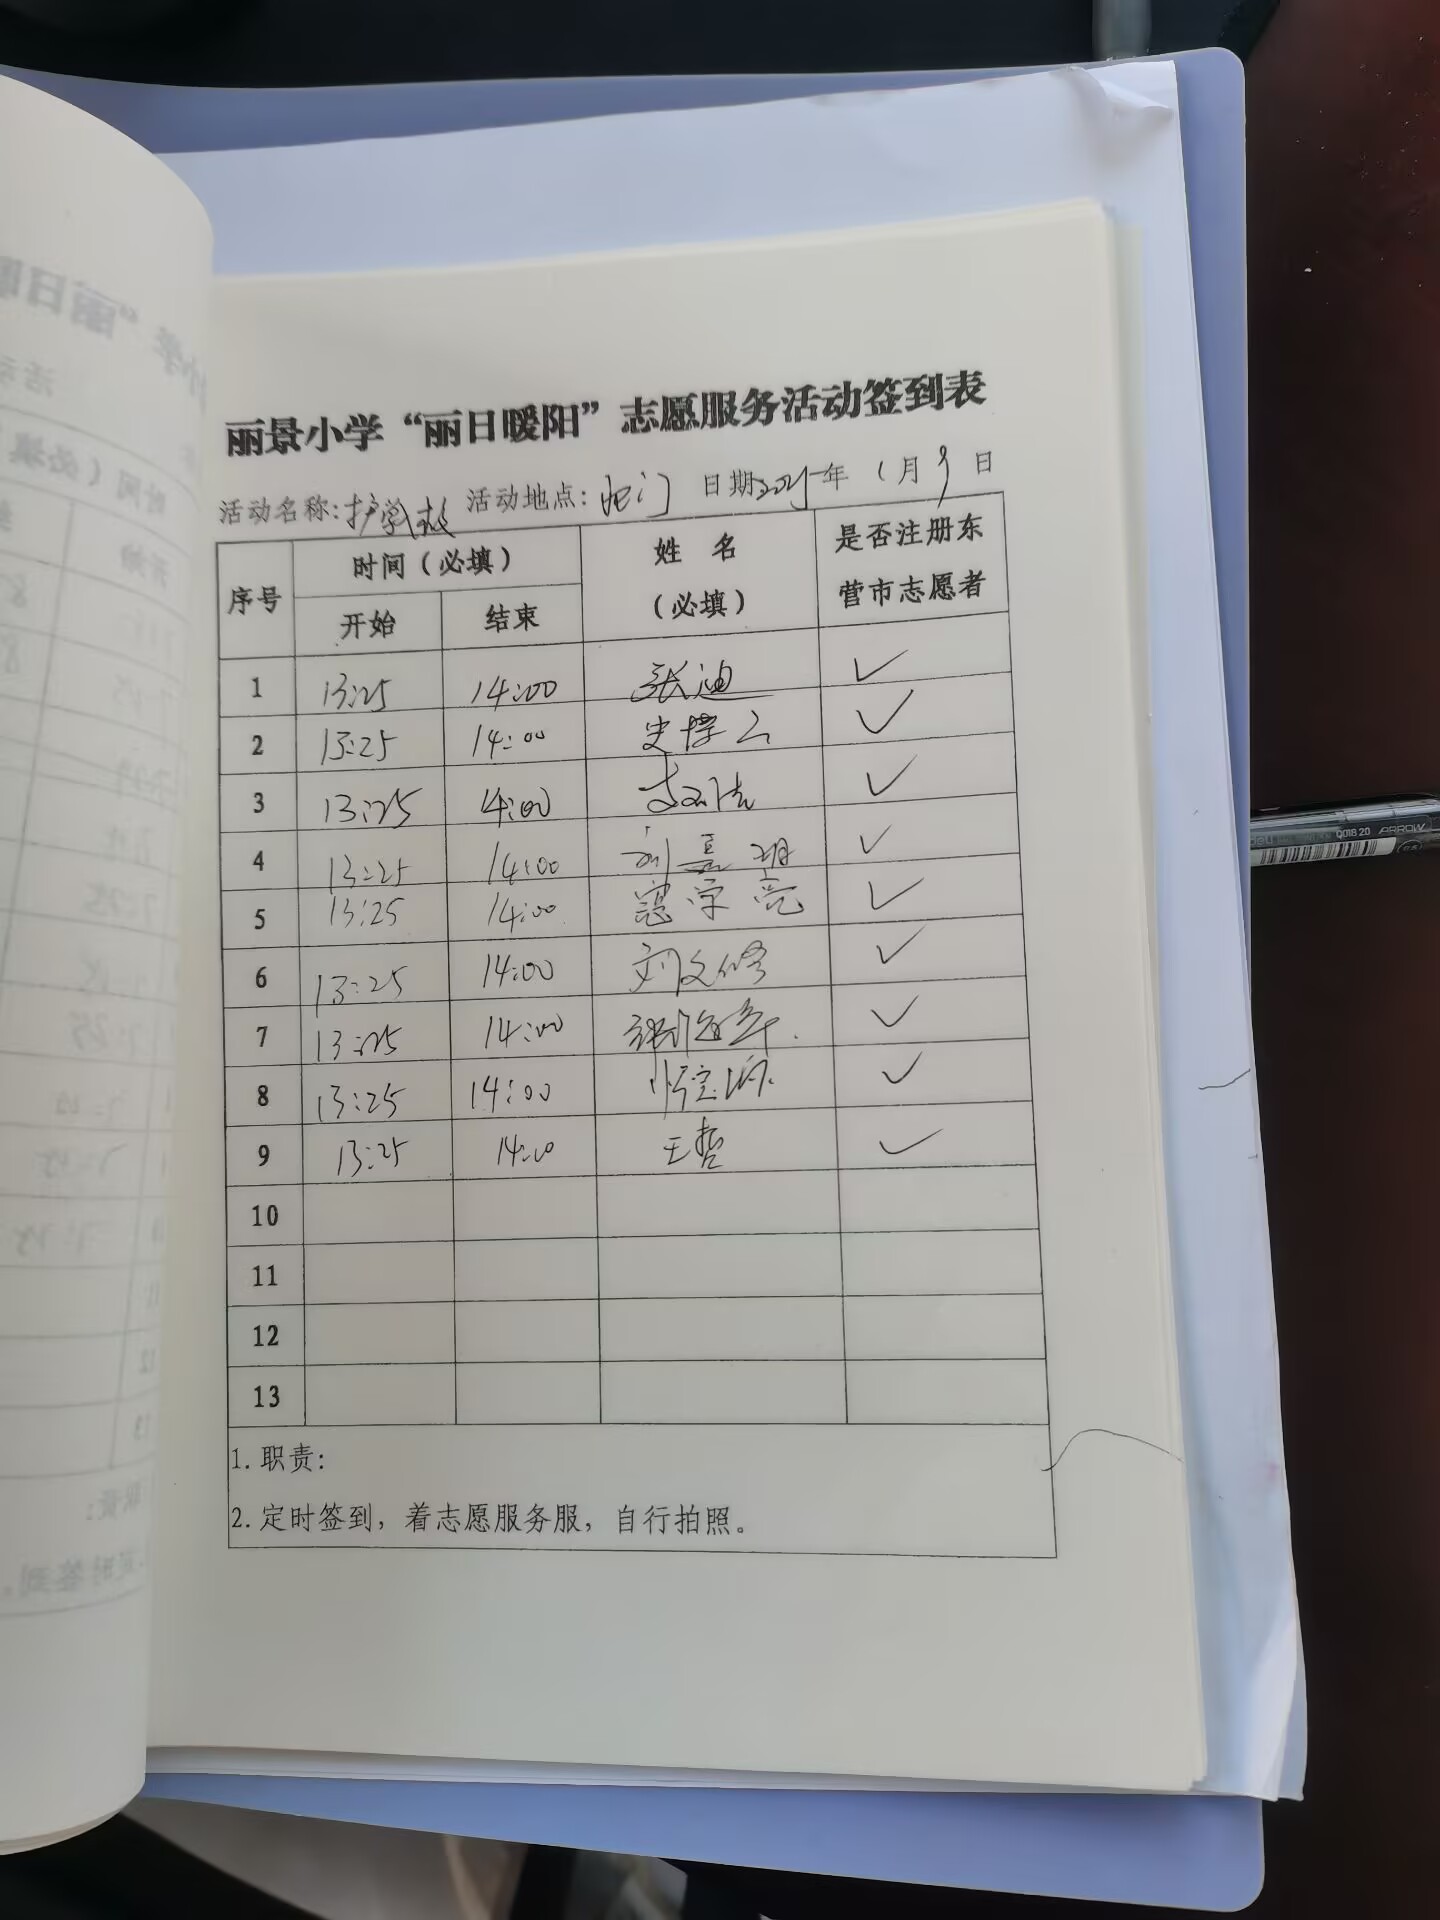 丽景小学“丽日暖阳”志愿服务活动签到表
活动名称:护学 活动地点: 门 日期2025年1月9日
序号 时间(必填) 姓 名(必填) 是否注册东营市志愿者
开始 结束
1 13:25 14:00 张迪 ✓
2 13:25 14:00 史 ✓
3 13:25 14:00 ✓
4 13:25 14:00 刘嘉 ✓
5 13:25 14:00 亮 ✓
6 13:25 14:00 刘文修 ✓
7 13:25 14:00 ✓
8 13:25 14:00 ✓
9 13:25 14:00 王哲 ✓
10
11
12
13
1. 职责:
2. 定时签到, 着志愿服务服, 自行拍照。
deli 0018 20 ARROW